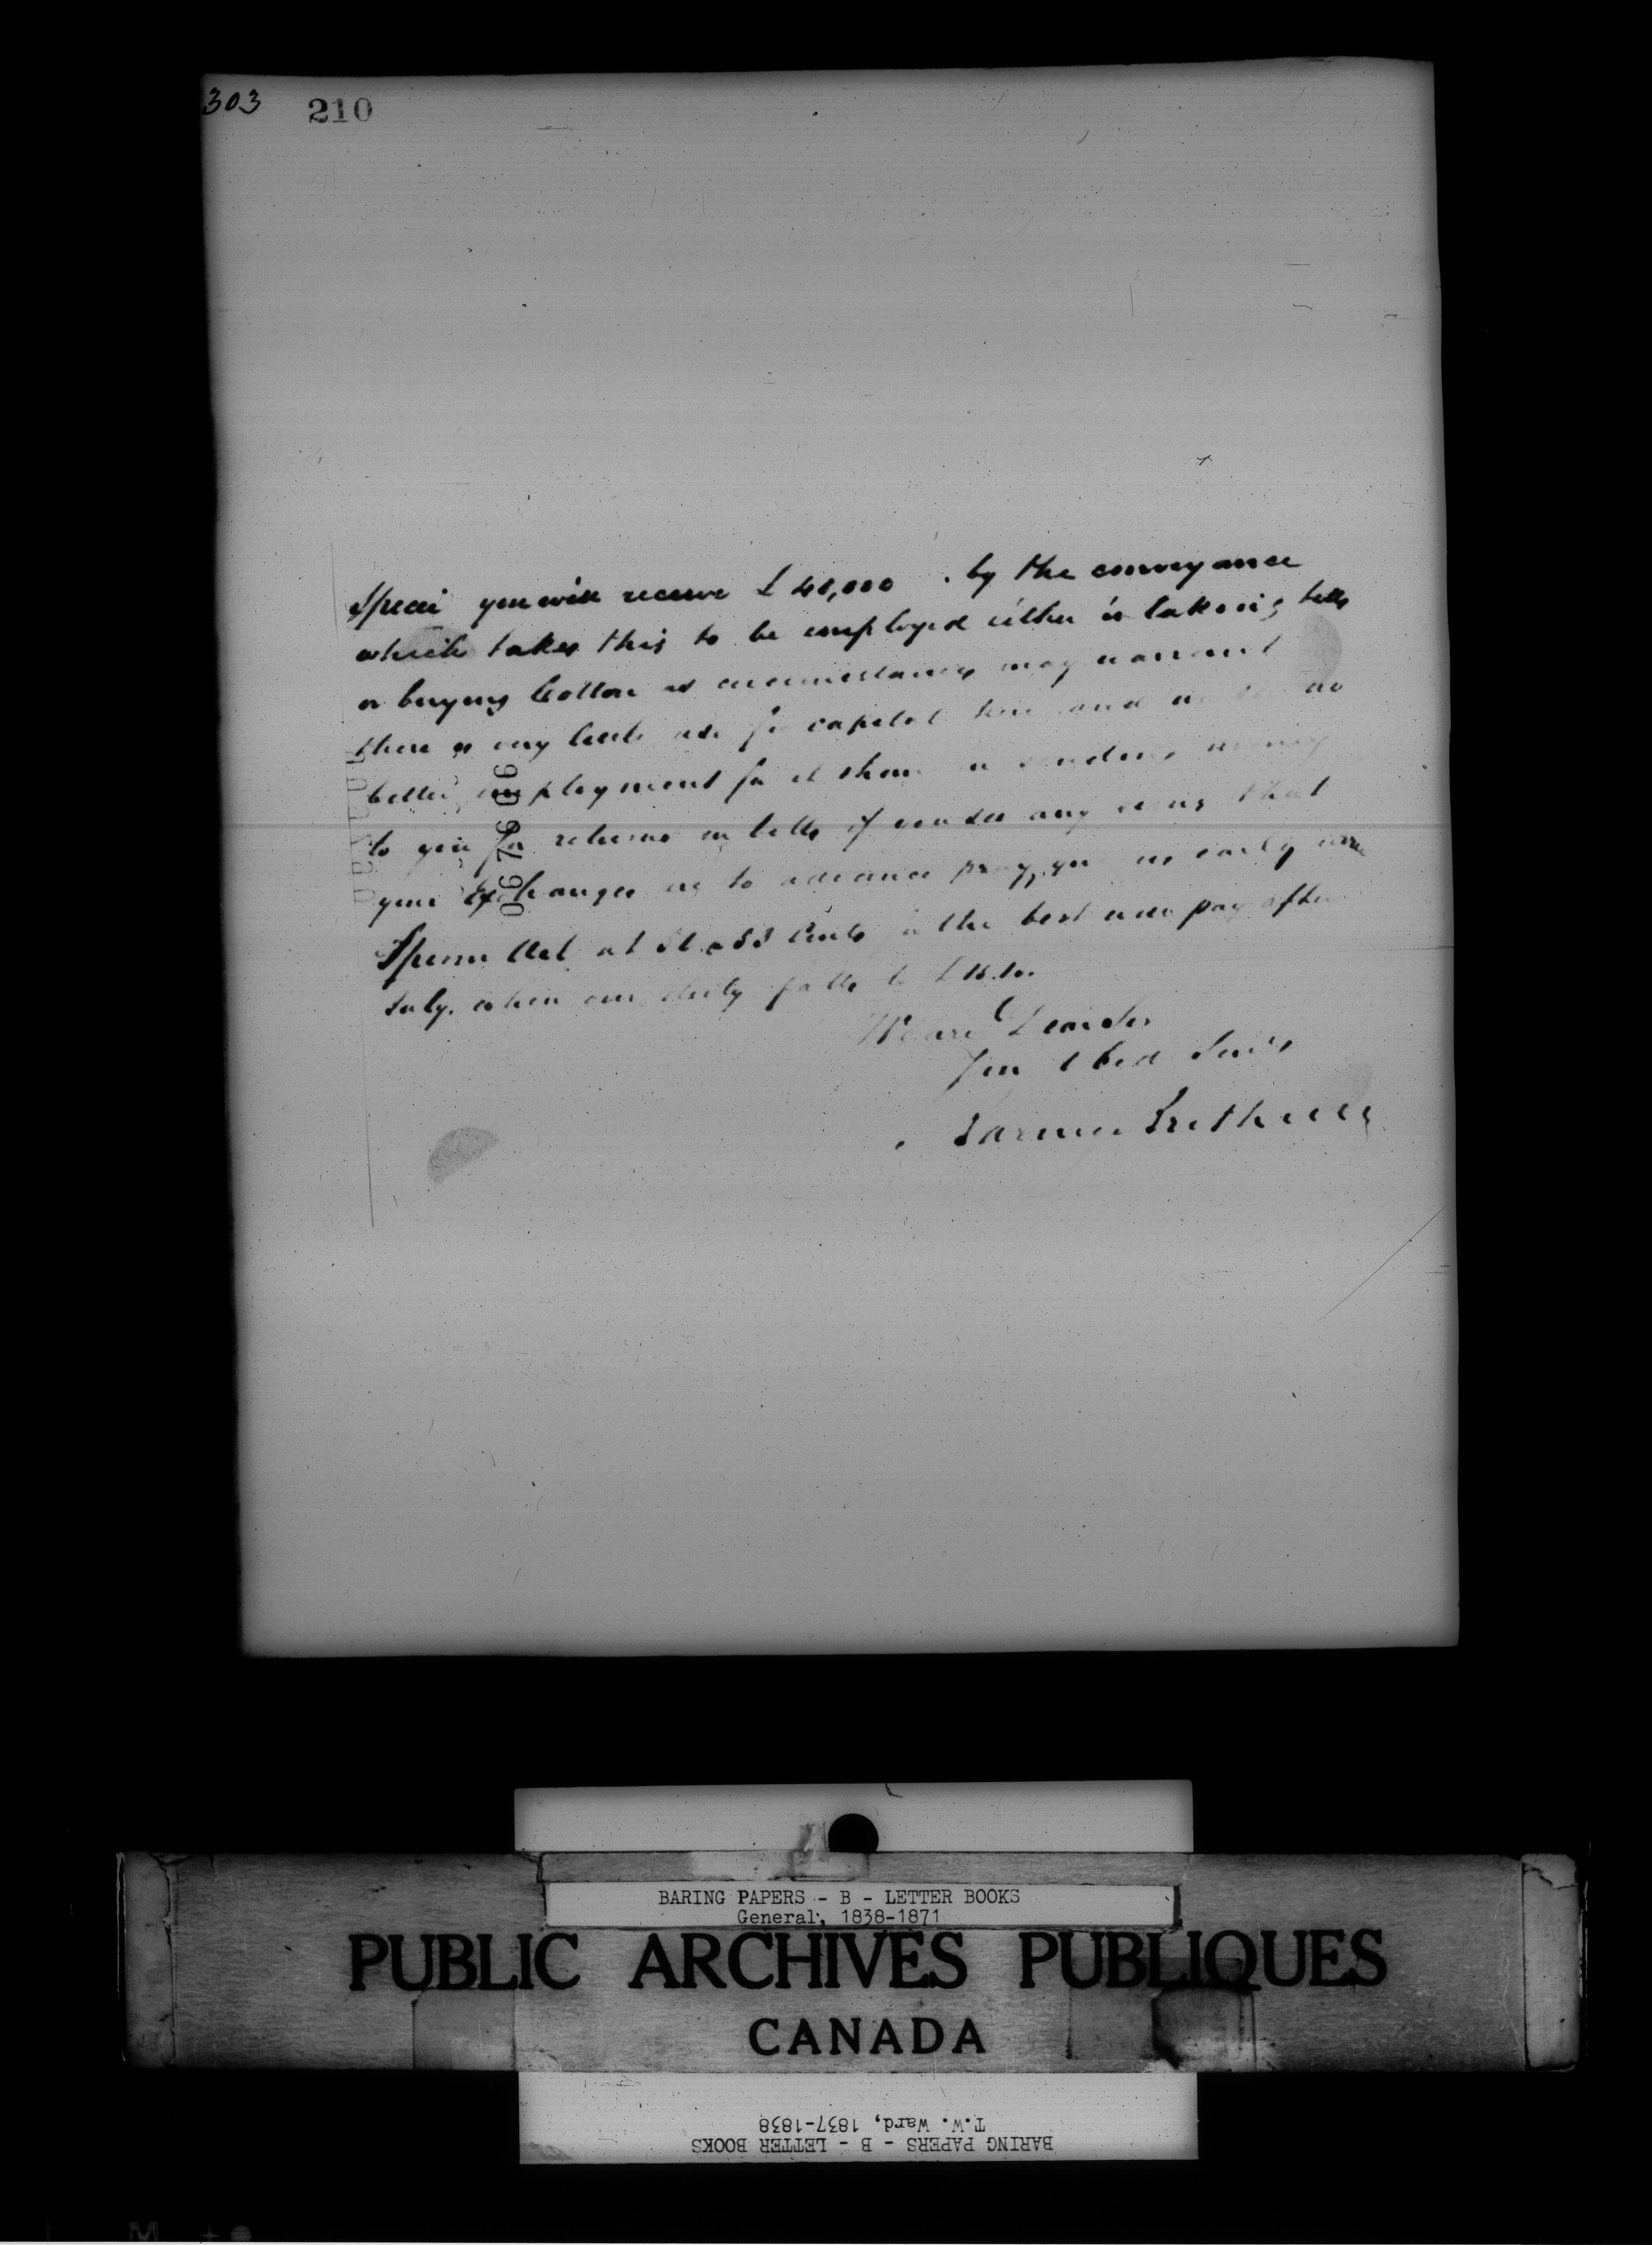 303 210
Specie you will receive £40,000 . by the conveyance
which takes this to be employed either in taking bills
or buying Cotton as circumstances may warrant
there is very little use for capital here and no
better employment for it than in sending money
to you for returns in bills if you see any
your Exchanges to advance pray, you early
Sperm at the best pay after
July. when our duty falls to £15.10.
We are Dear Sir
Your Obed Servts
Baring Brothers
0676 06
BARING PAPERS - B - LETTER BOOKS
General, 1838-1871
PUBLIC ARCHIVES PUBLIQUES
CANADA
T.W. Ward, 1837-1838
BARING PAPERS - B - LETTER BOOKS